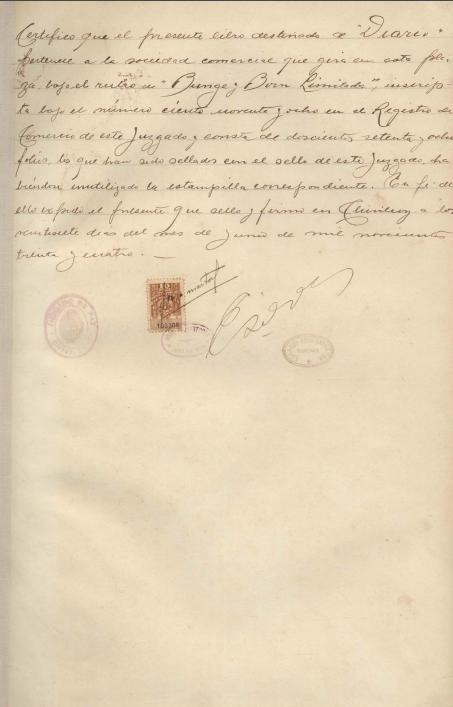 Certifico que el presente libro destinado a "Diario"
pertenece a la sociedad comercial que gira en esta pla-
za, bajo el rubro de "Bunge y Born Limitada", inscrip-
ta bajo el número ciento noventa y ocho en el Registro de
Comercio de este Juzgado y consta de doscientos setenta y ocho
folios, los que han sido sellados con el sello de este Juzgado, ha-
biéndose inutilizado la estampilla correspondiente. En fé de
ello expido el presente que sello y firmo en a los
veintisiete dias del mes de Junio de mil novecientos
treinta y cuatro. —
JUZGADO DE PAZ